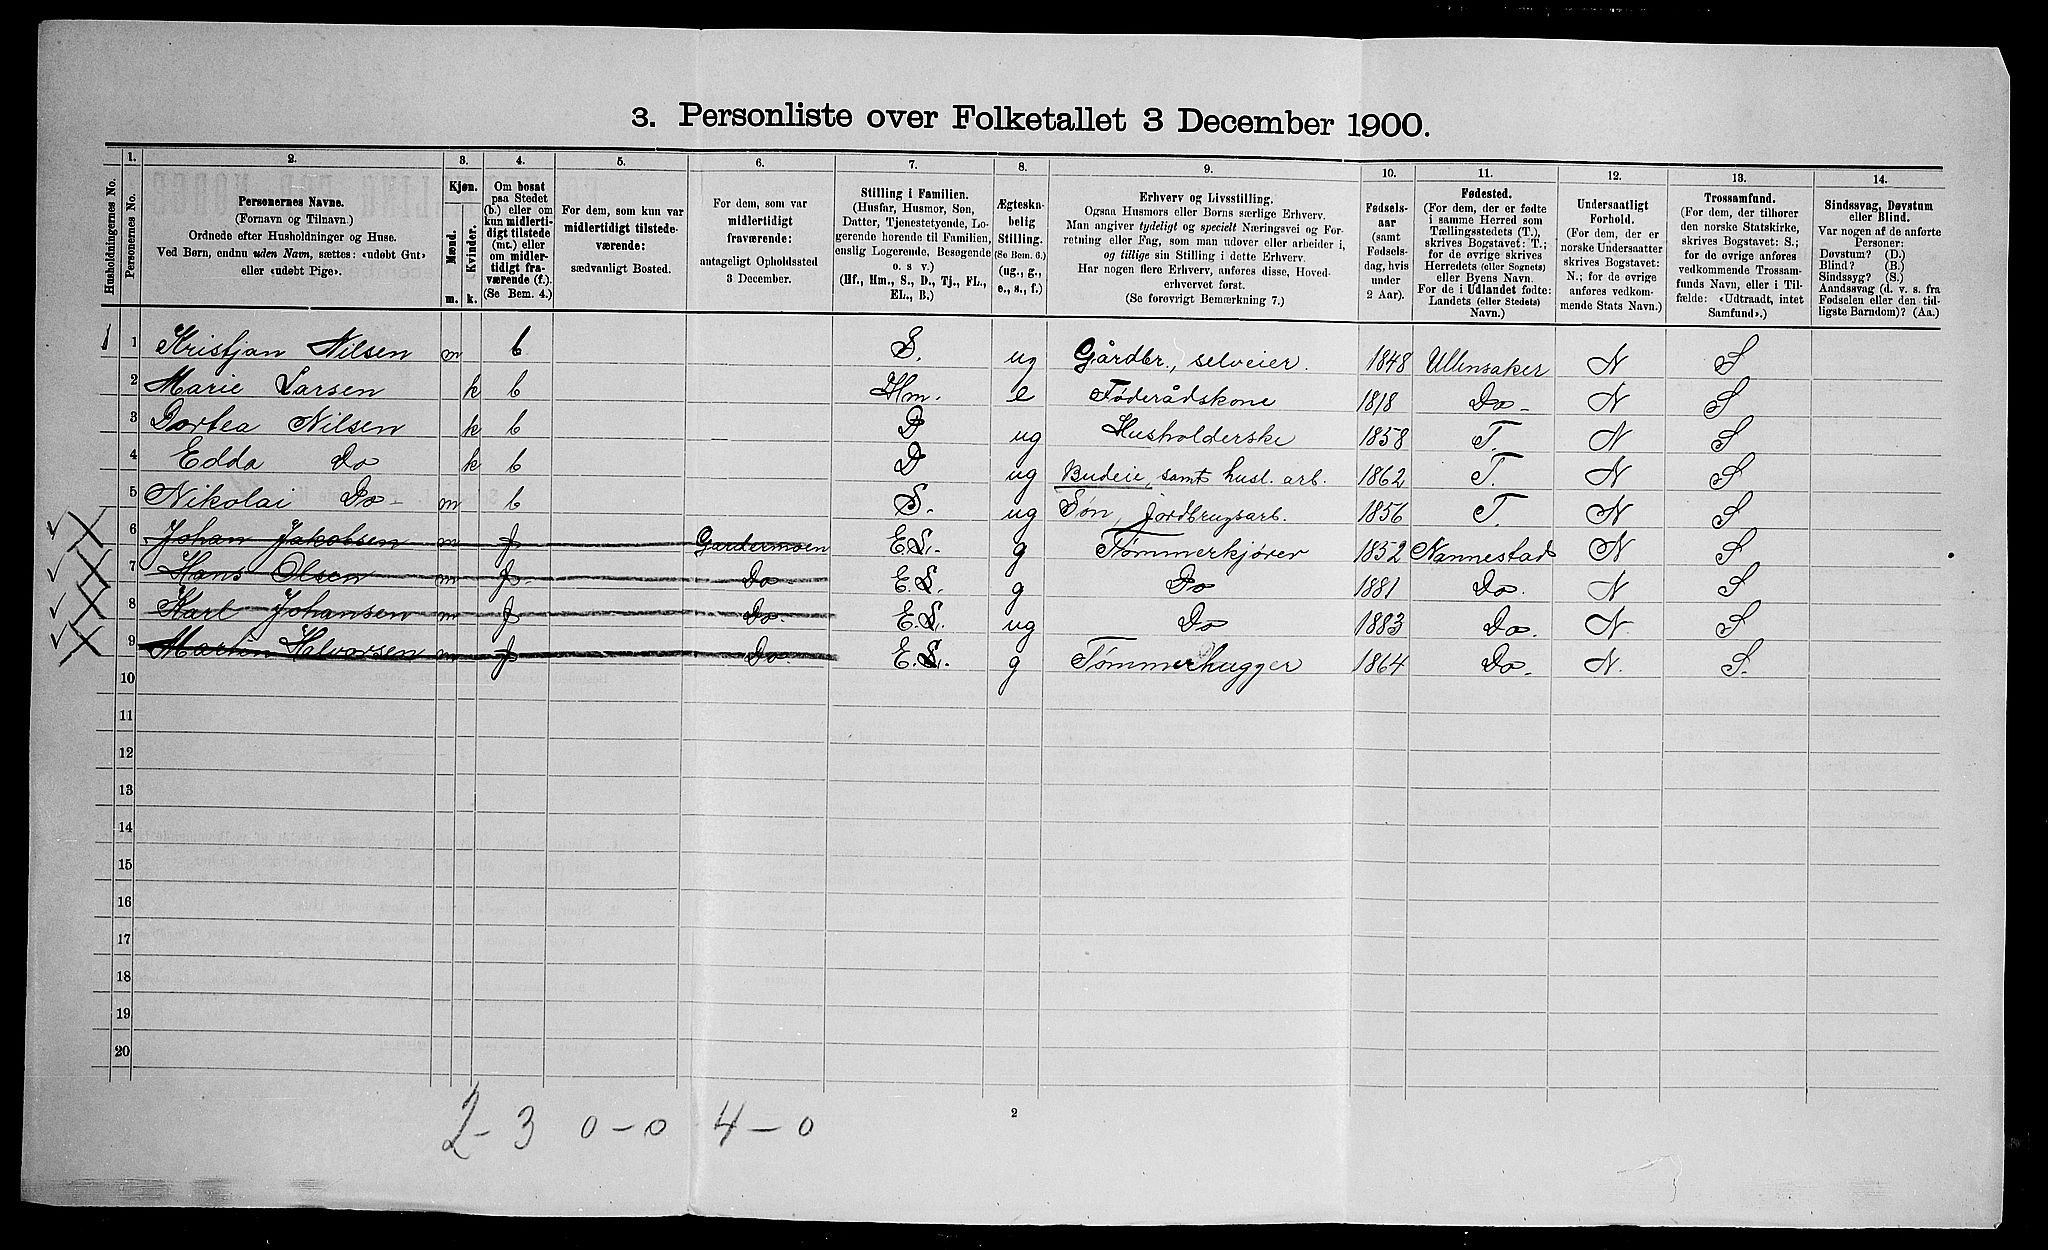 3. Personliste over Folketallet 3 December 1900.
1. 2. 3. 4. 5. 6. 7. 8. 9. 10. 11. 12. 13. 14.
Husholdningernes No.
Personernes No.
Personernes Navne.
(Fornavn og Tilnavn.)
Ordnede efter Husholdninger og Huse.
Ved Børn, endnu uden Navn, sættes: «udøbt Gut»
eller «udøbt Pige».
Kjøn.
Mænd.
Kvinder.
m. k.
Om bosat
paa Stedet
(b.) eller om
kun midler-
tidigt tilstede
(mt.) eller
om midler-
tidigt fra-
værende (f.)
(Se Bem. 4.)
For dem, som kun var
midlertidigt tilstede-
værende:
sædvanligt Bosted.
For dem, som var
midlertidigt
fraværende:
antageligt Opholdssted
3 December.
Stilling i Familien.
(Husfar, Husmor, Søn,
Datter, Tjenestetyende, Lo-
gerende hørende til Familien,
enslig Logerende, Besøgende
o. s v.)
(Hf., Hm., S., D., Tj., FL.,
EL., B.)
Ægteska-
belig
Stilling.
(Se Bem. 6.)
(ug., g.,
e., s., f.)
Erhverv og Livsstilling.
Ogsaa Husmors eller Børns særlige Erhverv.
Man angiver tydeligt og specielt Næringsvei og For-
retning eller Fag, som man udøver eller arbeider i,
og tillige sin Stilling i dette Erhverv.
Har nogen flere Erhverv, anføres disse, Hoved-
erhvervet først.
(Se forøvrigt Bemærkning 7.)
Fødsels-
aar
(samt
Fødsels-
dag, hvis
under
2 Aar).
Fødested.
(For dem, der er fødte
i samme Herred som
Tællingsstedets (T.),
skrives Bogstavet: T.;
for de øvrige skrives
Herredets (eller Sognets)
eller Byens Navn.
For de i Udlandet fødte:
Landets (eller Stedets)
Navn.)
Undersaatligt
Forhold.
(For dem, der er
norske Undersaatter
skrives Bogstavet:
N.; for de øvrige
anføres vedkom-
mende Stats Navn.)
Trossamfund.
(For dem, der tilhører
den norske Statskirke,
skrives Bogstavet: S.;
for de øvrige anføres
vedkommende Trossam-
funds Navn, eller i Til-
fælde: «Udtraadt, intet
Samfund».)
Sindssvag, Døvstum
eller Blind.
Var nogen af de anførte
Personer:
Døvstum? (D.)
Blind? (B.)
Sindssyg? (S.)
Aandssvag (d. v. s. fra
Fødselen eller den tid-
ligste Barndom)? (Aa.)
1 1 Kristjan Nilsen m b S. ug Gårdbr., selveier. 1848 Ullensaker N S
2 Marie Larsen k b Hm. e Føderådskone 1818 Do- N S
3 Dortea Nilsen k b D ug Husholderske 1858 T. N S
4 Edda Do k b D ug Budeie, samt husl. arb. 1862 T. N S
5 Nikolai Do- m b S. ug Søn, jordbrugsarb. 1856 T. N S
6 Johan Jakobsen m f Gardermoen E.L. g Tømmerkjører 1852 Nannestad N S
7 Hans Olsen m f. Do- E L. g Do 1881 Do. N S
8 Karl Johansen m f Do. E.L. ug Do 1883 Do. N. S
9 Martin Halvorsen m f Do. E.L. g Tømmerhugger 1864 Do. N. S.
10
11
12
13
14
15
16
17
18
19
20
2-3 0-0 4-0
2